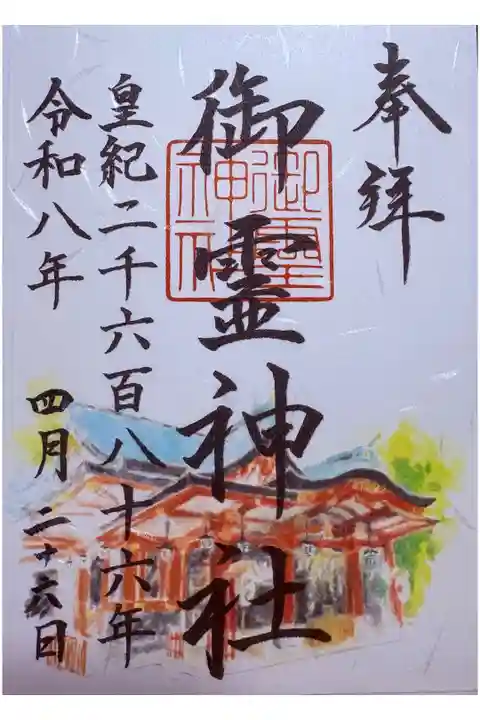 奉拝
御霊神社
御霊神社
皇紀二千六百八十六年
令和八年 四月二十六日